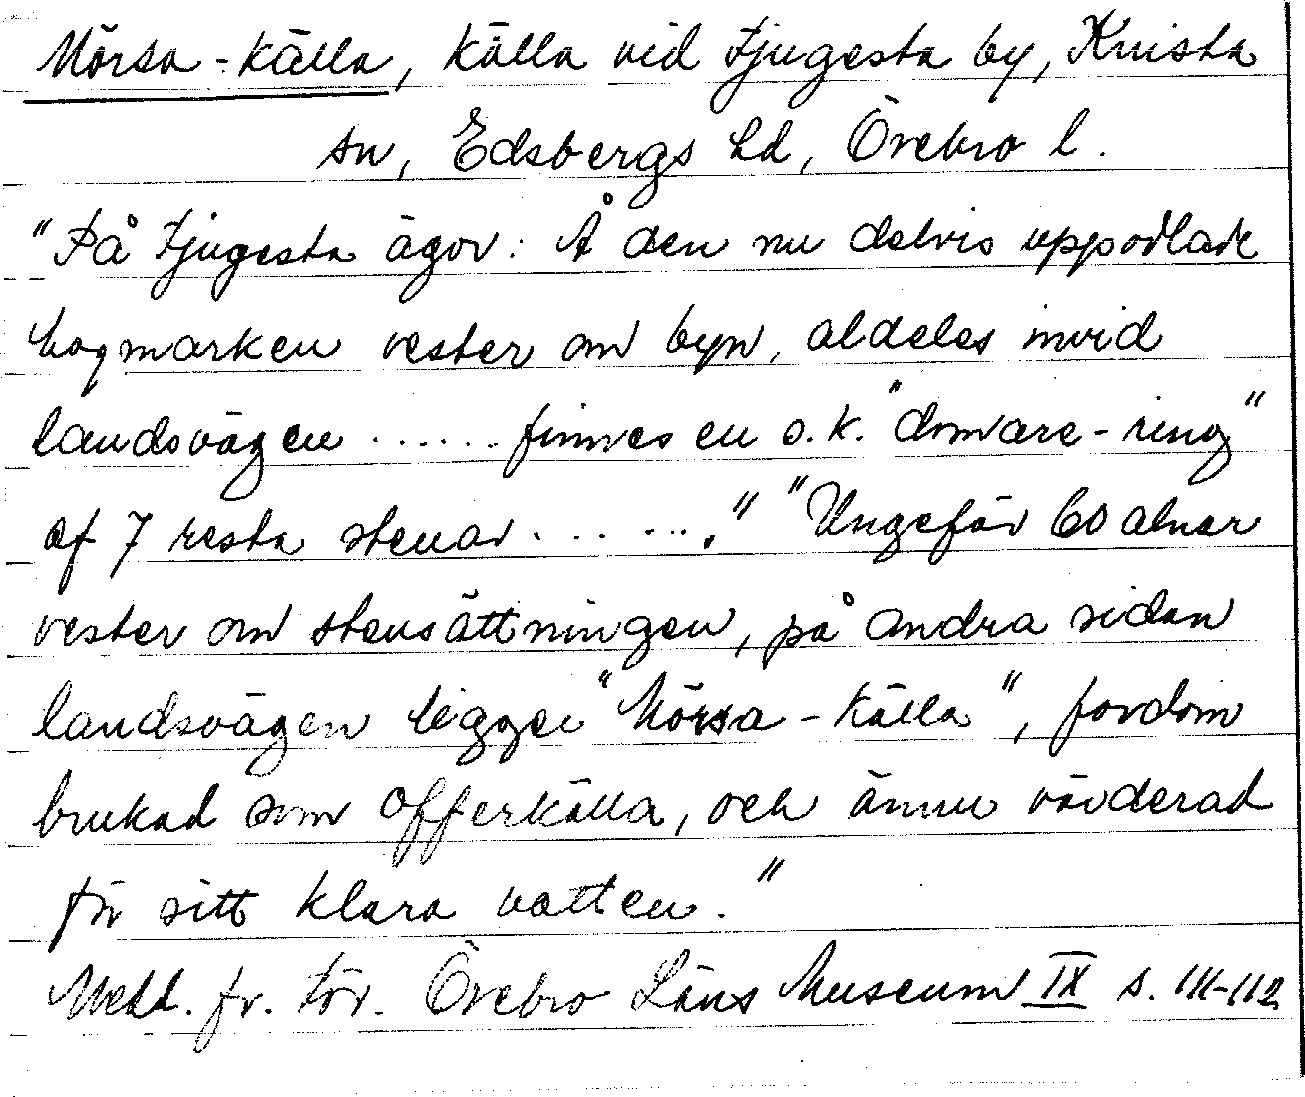 Mörsa-källa, källa vid Fjugesta by, Knista
sn, Edsbergs hd, Örebro l.
"På Fjugesta ägor: Å den nu delvis uppodlade
hagmarken vester om byn, aldeles invid
landsvägen ...... finnes en s.k. "domare-ring"
af 7 resta stenar ......." "Ungefär 60 alnar
vester om stensättningen, på andra sidan
landsvägen ligger "Mörsa-källa", fordom
brukad som offerkälla, och ännu värderad
för sitt klara vatten."
Medd. fr. För. Örebro Läns Museum IX s. 111-112